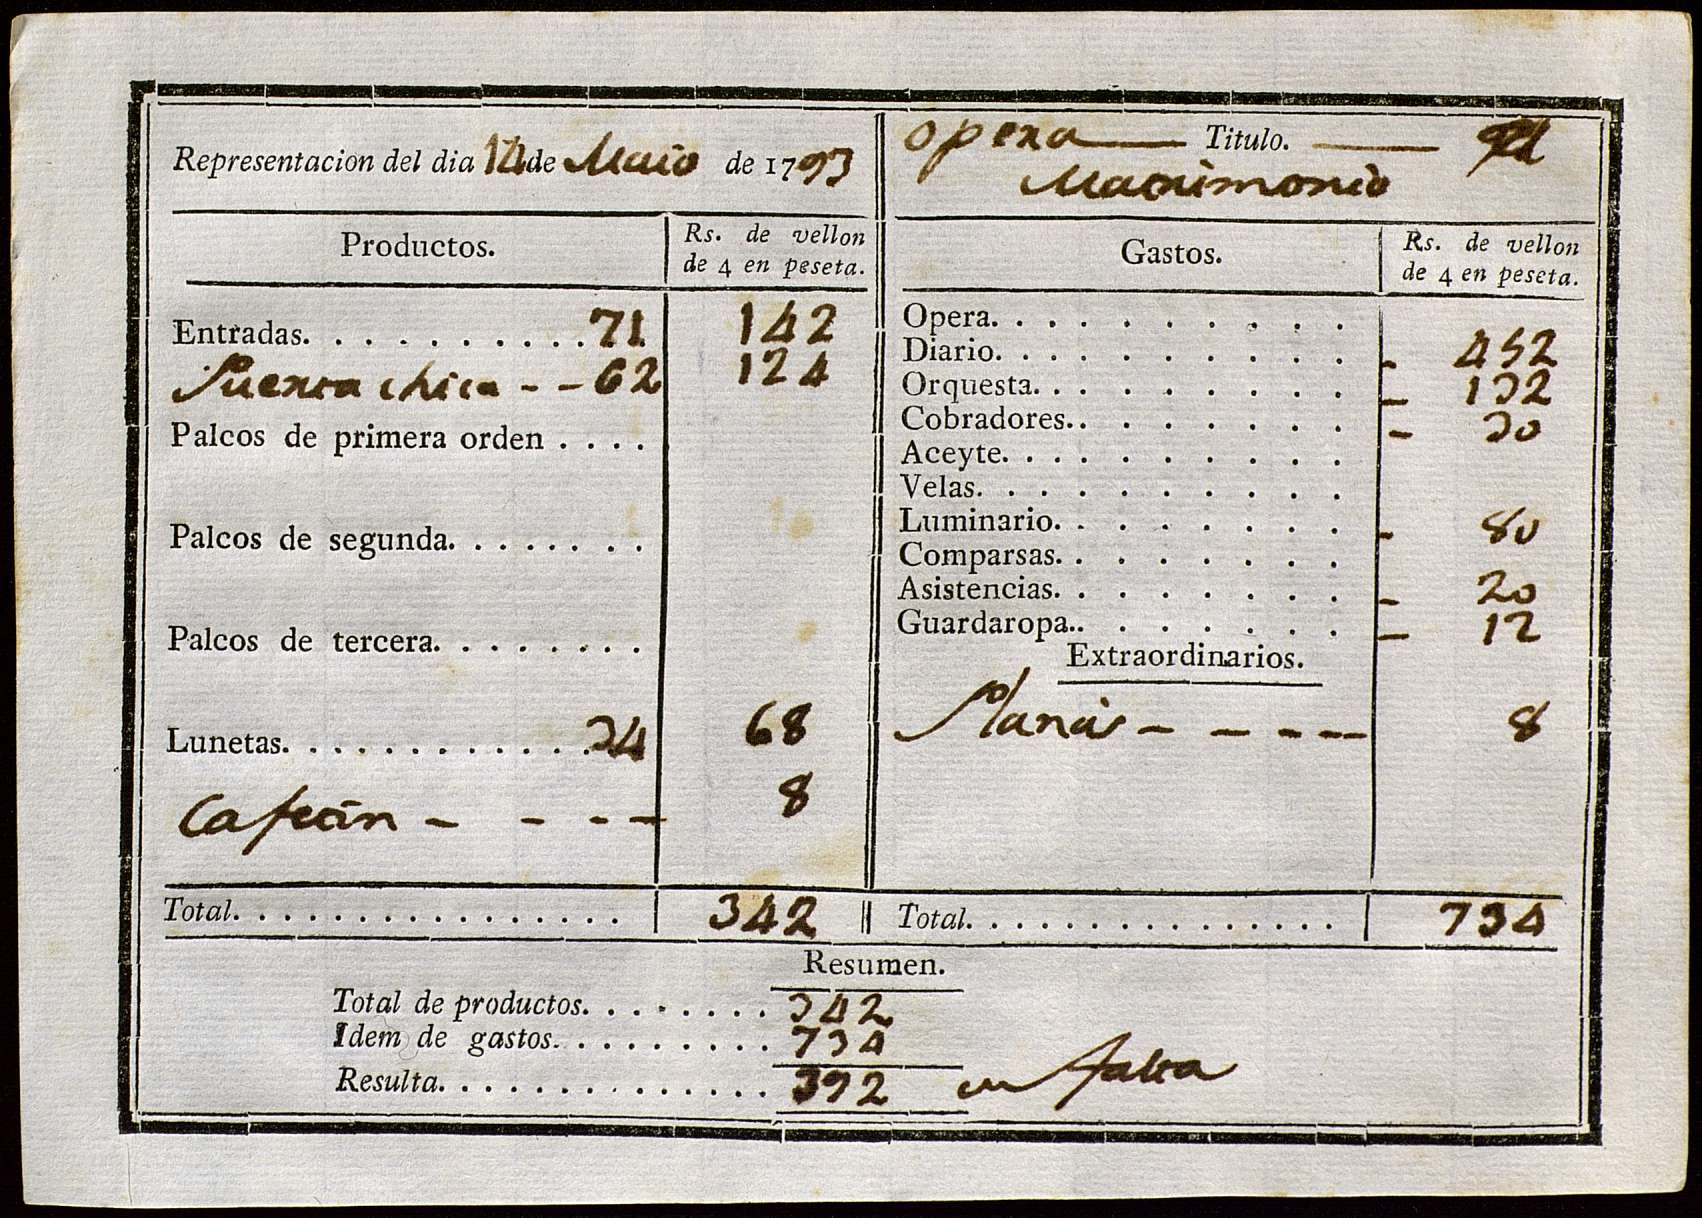 Representacion del dia 14 de Maio de 1793
Opera Titulo. El
Matrimonio
Productos.
Rs. de vellon
de 4 en peseta.
Entradas. . . . . . . . . . . 71 142
Puerta chica - - 62 124
Palcos de primera orden . . . .
Palcos de segunda. . . . . . . .
Palcos de tercera. . . . . . . .
Lunetas. . . . . . . . . . . . 34 68
Cafetin - - - - 8
Total. . . . . . . . . . . . . . . . 342
Gastos.
Rs. de vellon
de 4 en peseta.
Opera. . . . . . . . . .
Diario. . . . . . . . . . - 452
Orquesta. . . . . . . . . - 132
Cobradores. . . . . . . . - 30
Aceyte. . . . . . . . . .
Velas. . . . . . . . . .
Luminario. . . . . . . . - 80
Comparsas. . . . . . . .
Asistencias. . . . . . . . - 20
Guardaropa. . . . . . . . - 12
Extraordinarios.
- - - - 8
Total. . . . . . . . . . . . . . . . 734
Resumen.
Total de productos. . . . . . . . 342
Idem de gastos. . . . . . . . . . 734
Resulta. . . . . . . . . . . . . . 392 en falta